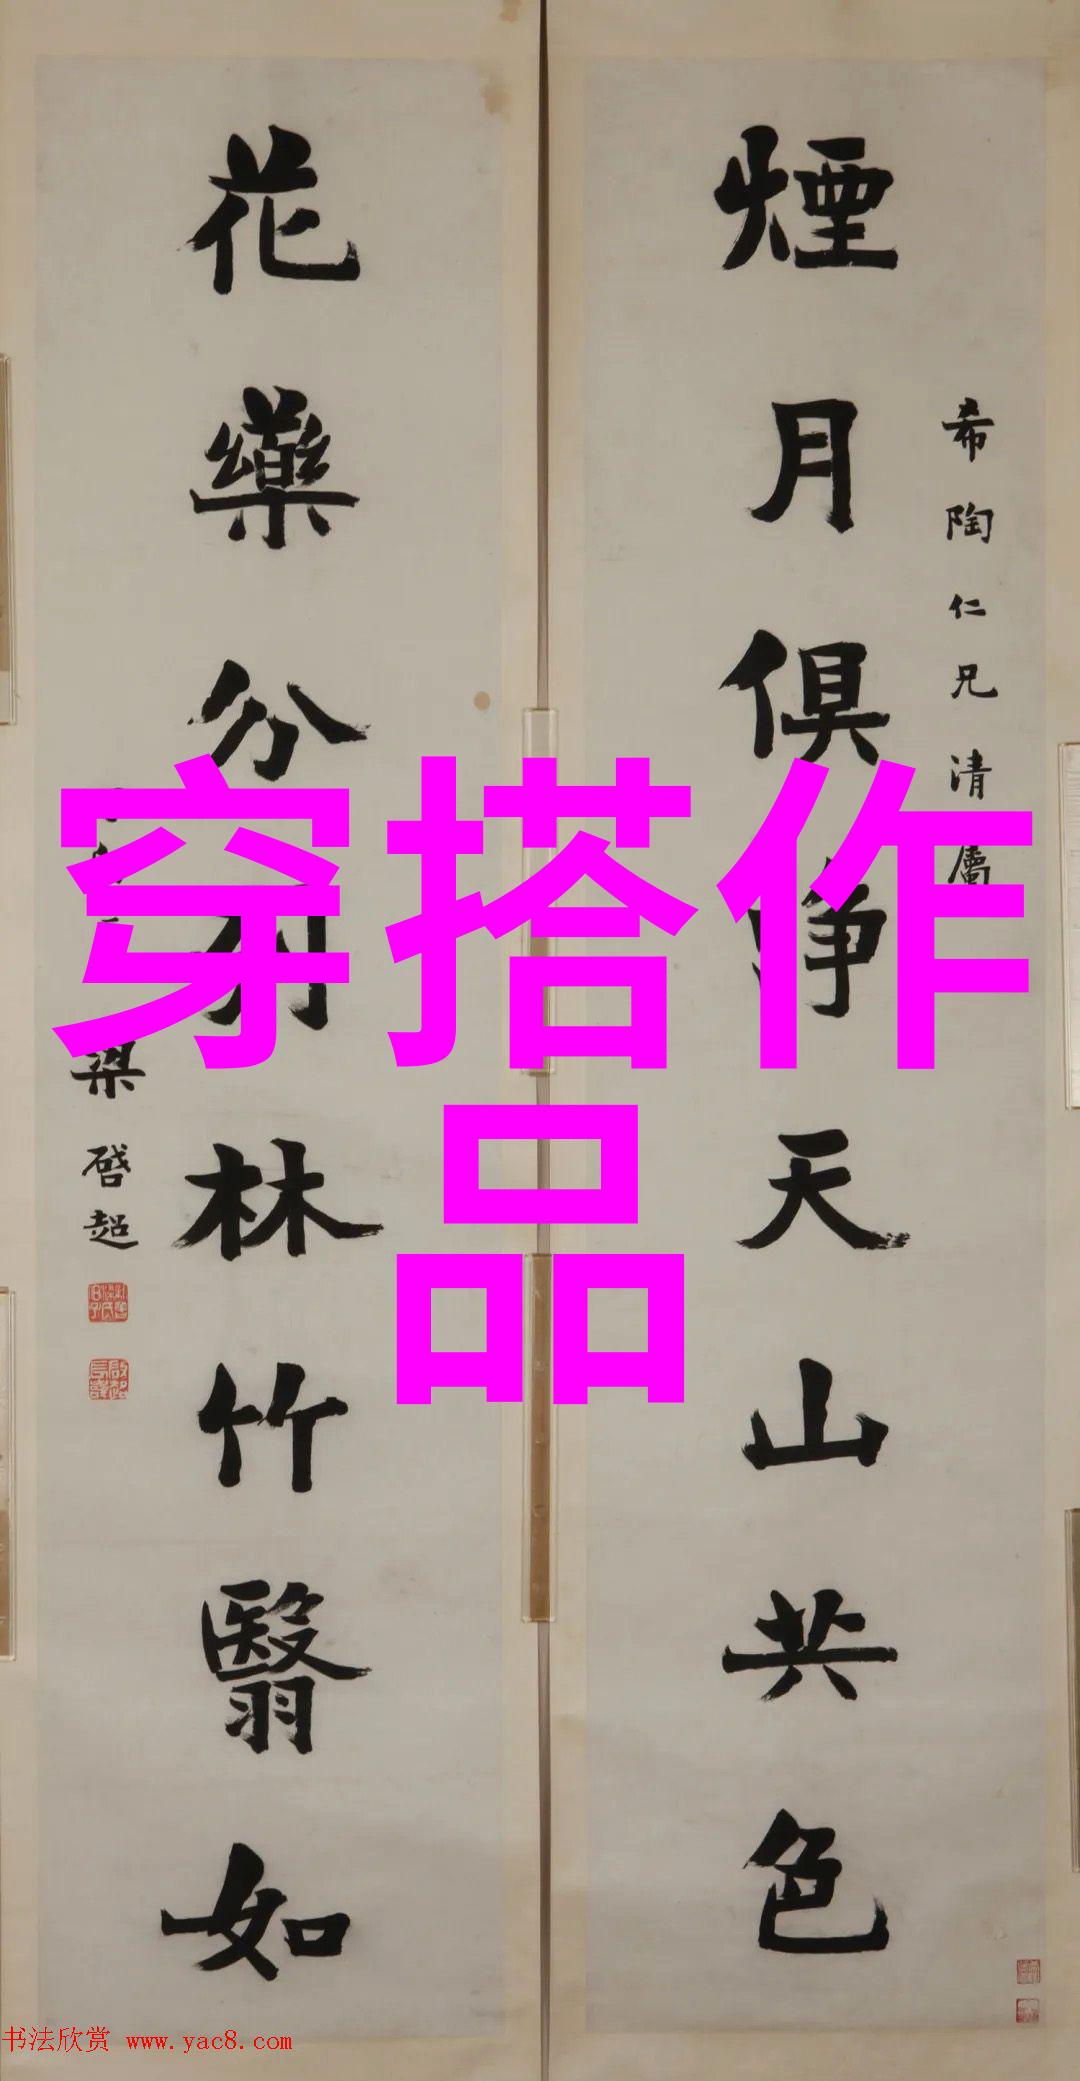 煙月俱淨天山共色
希陶仁兄清屬
花藥分列林竹翳如
梁啓超
穿搭作
品
书法欣赏 www.yac8.com